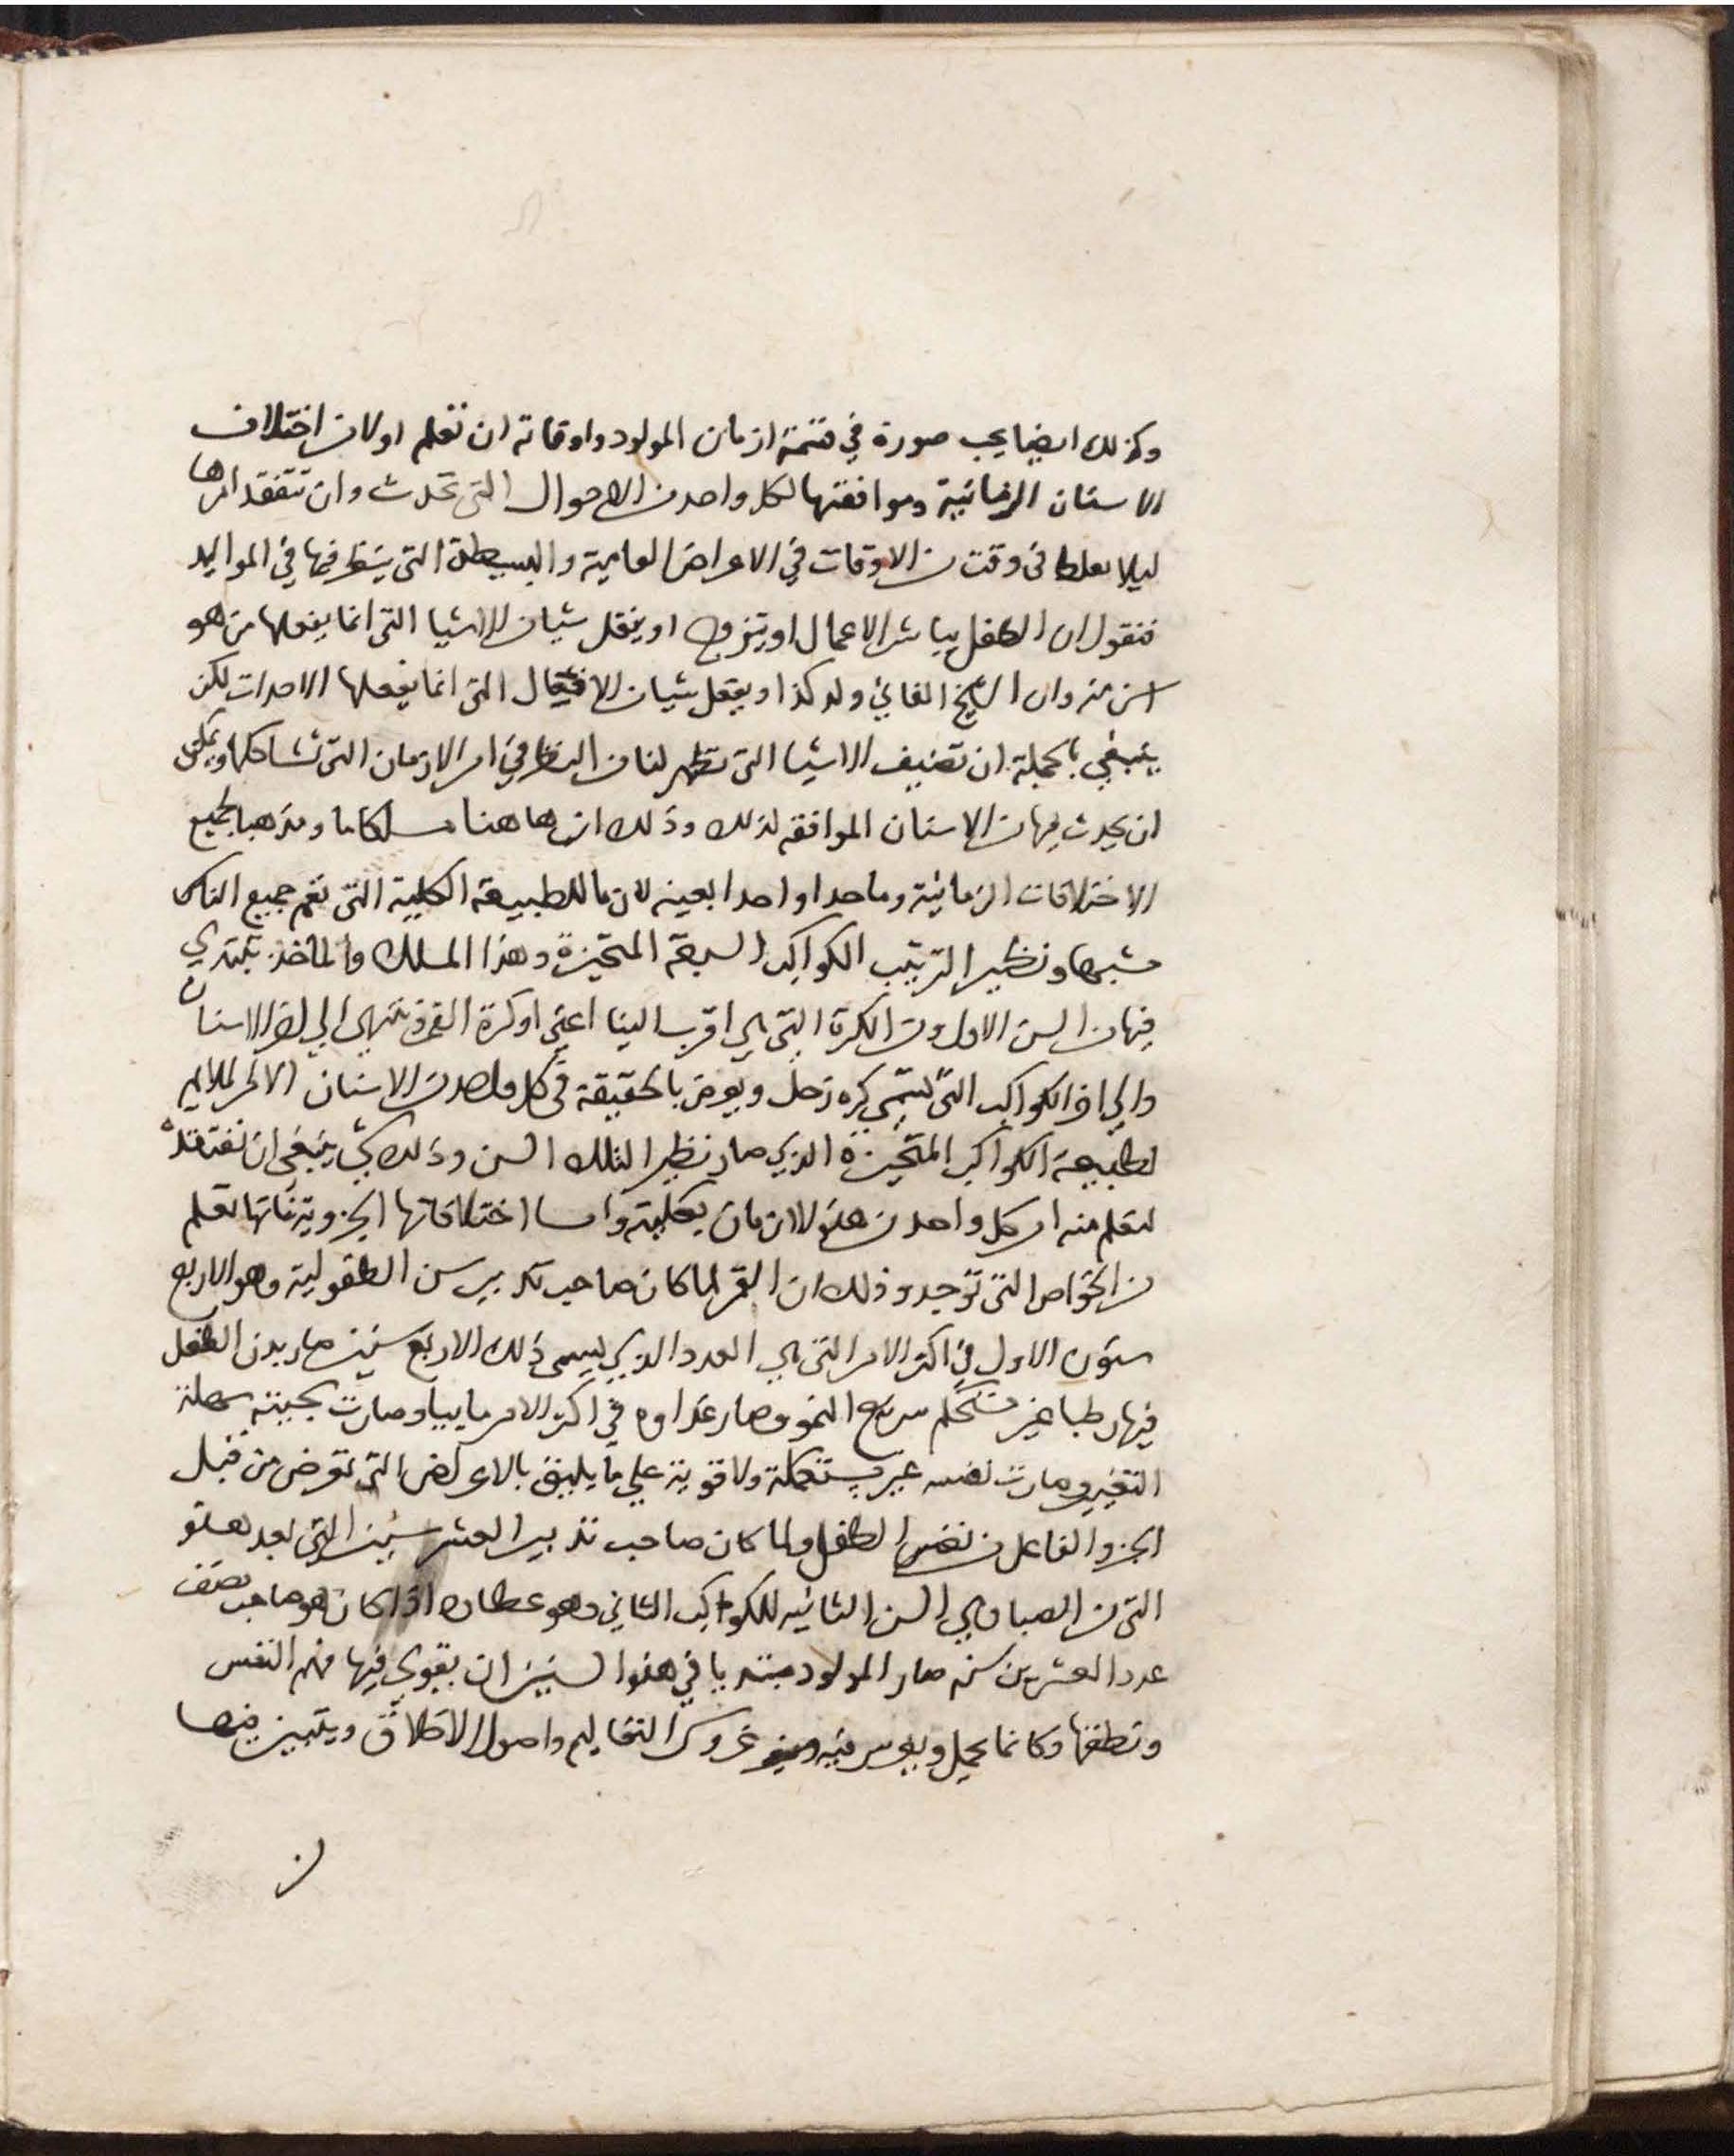 وكذلك ايضا يجب صورة في قسمة ازمان المولود واوقاته ان نعلم اولا من اختلاف
الاسنان الزمانية وموافقتها لكل واحد من الاحوال التي تحدث وان نتفقد امرها
ليلا نغلط في وقت من الاوقات في الاعراض العامية والبسيطة التي ينظر فيها في المواليد
فنقول ان الطفل يباشر الاعمال او يتزوج او يفعل شيا من الاشيا التي انما يفعلها من هو
اسن منه وان الشيخ الفاني ولد كذا او يفعل شيا من الافعال التي انما يفعلها الاحداث لكن
ينبغي بالجملة ان نضيف الاشيا التي تظهر لنا من النظر في امر الازمان التي تشاكلها ويمكن
ان يحدث فيها من الاسنان الموافقه لذلك وذلك ان هاهنا مسلكا ما ومذهبا لجميع
الاختلافات الزمانية وماحدا واحدا بعينه لان ما للطبيعة الكلية التي تعم جميع الناس
مشبها ونظيرا لترتيب الكواكب السبعة المتحيزة وهذا المسلك والماخذ يبتدي
فيها من السن الاول ومن الكرة التي هي اقرب الينا اعني اوكرة القمر وينتهي الي اخر الاسنان
والي اخر الكواكب التي تسمي كره زحل ويعرض بالحقيقة في كل واحد من الاسنان الامر الملايم
لطبيعة الكواكب المتحيزة الذي صار نظيرا لتلك السن وذلك شي ينبغي ان نفتقده
لنعلم منه امر كل واحد من هذه الازمان بكلية واما اختلافاتها الجزوية فانا نعلم
من الخواص التي توجد وذلك ان القمر لما كان صاحب تدبير سن الطفولية وهو الاربع
سنون الاول في اكثر الامر التي هي العدد الذي يسمي ذلك الاربع سنين صار بدن الطفل
فيها رطبا غير مستحكم سريع النمو وصار غداوه في اكثر الامر ماييا وصارت سجيته سهلة
التغير وصارت نفسه غير مستكملة ولا قوية علي ما يليق بالاعراض التي تعرض من قبل
الجزو الفاعل من نفس الطفل ولما كان صاحب تدبير العشر سنين التي بعد هذه
التي من الصبا وهي السن الثانيه للكواكب الثاني وهو عطارد اذا كان هو صاحب نصف
عدد العشرين سنه صار المولود مبتديا في هذه السنين ان يقوي فيها فهم النفس
ونطقها وكانما يحمل ويغرس فيه غروس التعاليم واصول الاخلاق ويتبين فيها